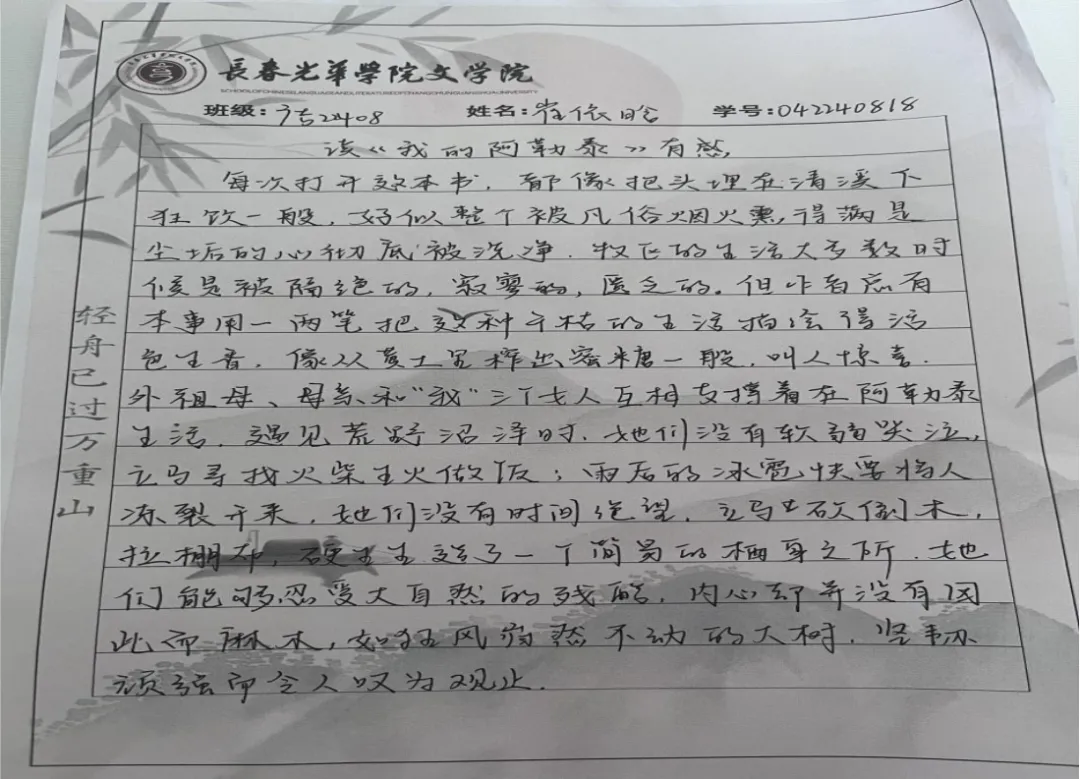 長春光華學院文学院
SCHOOL OF CHINESE LANGUAGE AND LITERATURE OF CHANGCHUN GUANGHUA UNIVERSITY
班级：语22408 姓名：崔依晗 学号：042240818
读《我的阿勒泰》有感
每次打开这本书，都像把头埋在清溪下
狂饮一般，好似整个被凡俗烟火熏得满是
尘垢的心彻底被洗净．牧区的生活大多数时
候是被隔绝的，寂寥的，匮乏的。但作者总有
本事用一两笔把这种干枯的生活描绘得活
色生香，像从黄土里榨出蜜糖一般，叫人惊喜．
外祖母、母亲和“我”三个女人互相支撑着在阿勒泰
生活．遇见荒野沼泽时．她们没有软弱哭泣，
立马寻找火柴生火做饭；雨后的冰雹快要将人
冻裂开来，她们没有时间绝望．立马去砍倒木，
拉棚布，硬生生造了一个简易的栖身之所．她
们能够忍受大自然的残酷，内心却并没有因
此而麻木，如狂风岿然不动的大树．坚韧
顽强而令人叹为观止．
轻舟已过万重山